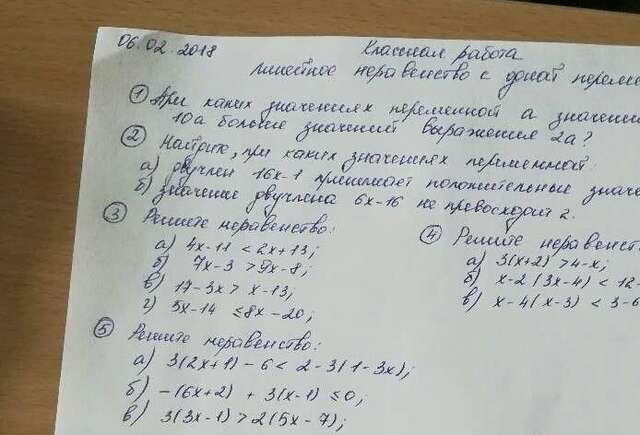 06.02.2018 Классная работа
Линейное неравенство с одной переме
① При каких значениях переменной а значени
10а больше значений выражения 2а?
② Найдите, при каких значениях переменной:
а) двучлен 16х-1 принимает положительные значе
б) значение двучлена 6х-16 не превосходит 2.
③ Решите неравенство:
а) 4х-11 < 2х+13;
б) 7х-3 > 9х-8;
в) 17-3х > х-13;
г) 5х-14 ≤ 8х-20;
④ Решите неравенст
а) 3(х+2) > 4-х;
б) х-2(3х-4) < 12-
в) х-4(х-3) < 3-6
⑤ Решите неравенство:
а) 3(2х+1)-6 < 2-3(1-3х);
б) -(6х+2) + 3(х-1) ≤ 0;
в) 3(3х-1) > 2(5х-7);